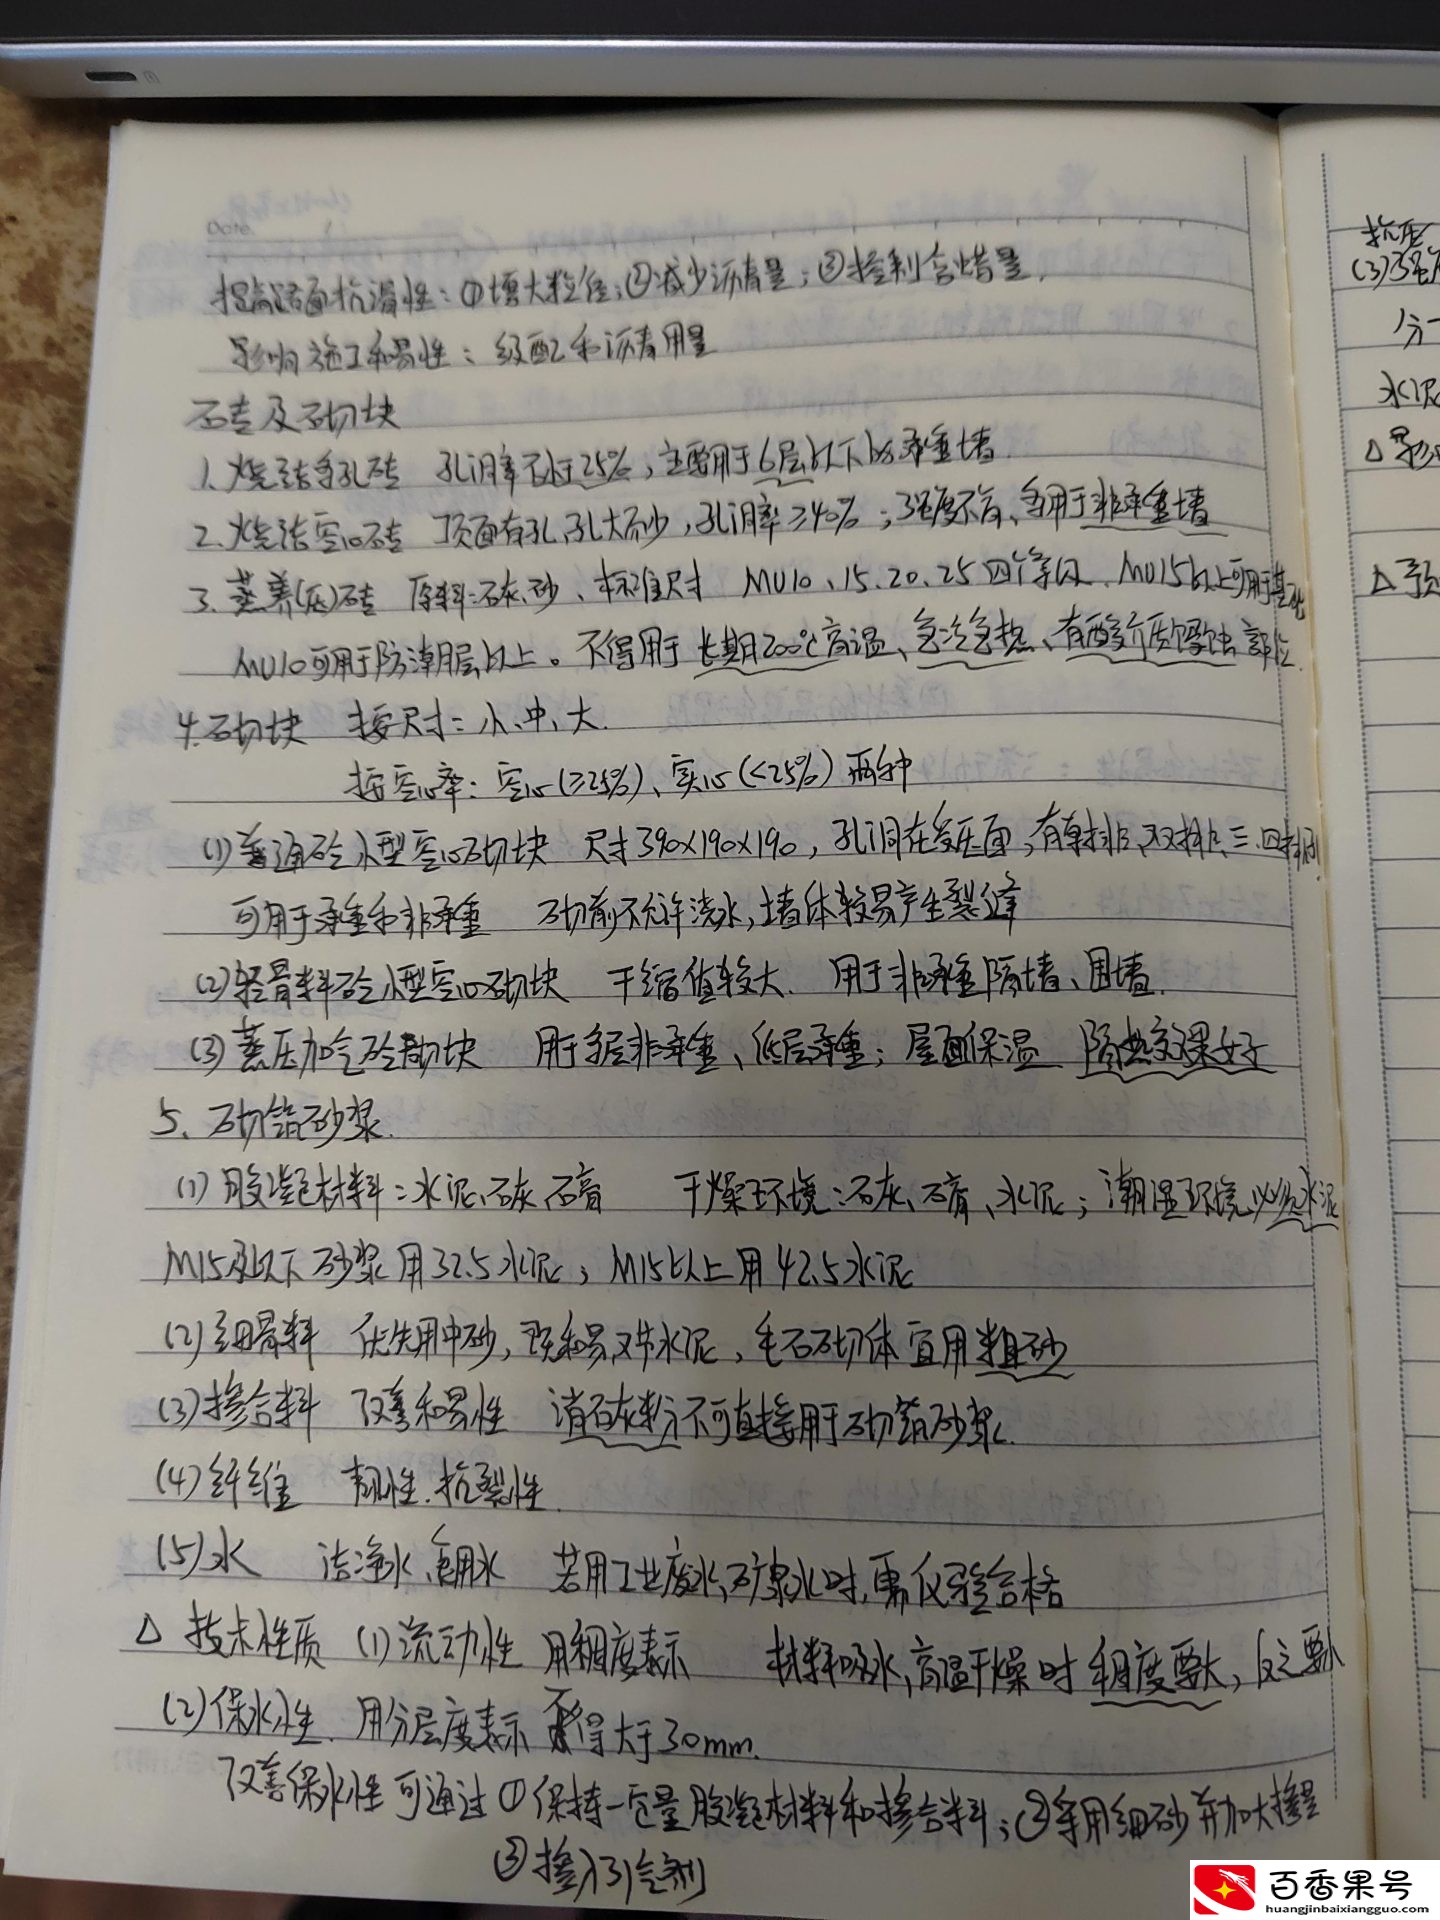 Date.
提高路面抗滑性:①增大粒径;②减少沥青量;③控制含蜡量.
影响施工和易性:级配和沥青用量
砖及砌块
1. 烧结多孔砖 孔洞率不小于25%,主要用于6层以下的承重墙.
2. 烧结空心砖 顶面有孔、孔大而少,孔洞率≥40%;强度不高、多用于非承重墙
3. 蒸养(压)砖 原料:石灰、砂、标准尺寸 MU10、15.20.25四个等级. MU15以上可用于基础
MU10可用于防潮层以上。不得用于长期200℃高温、急冷急热、有酸介质侵蚀部位.
4.砌块 按尺寸:小、中、大.
按空心率:空心(≥25%)、实心(<25%)两种
(1)普通砼小型空心砌块 尺寸390×190×190,孔洞在受压面,有单排、双排、三.四排孔
可用于承重和非承重 砌前不允许浇水,墙体较易产生裂缝
(2)轻骨料砼小型空心砌块 干缩值较大. 用于非承重隔墙、围墙.
(3)蒸压加气砼砌块 用于多层非承重、低层承重;屋面保温 隔热效果好
5、砌筑砂浆.
(1)胶凝材料:水泥、石灰、石膏 干燥环境:石灰、石膏、水泥;潮湿环境,必须水泥
M15及以下砂浆用32.5水泥;M15以上用42.5水泥
(2)细骨料 优先用中砂,既和易又节水泥,毛石砌体宜用粗砂
(3)掺合料 改善和易性 消石灰粉不可直接用于砌筑砂浆.
(4)纤维 韧性.抗裂性.
(5)水 洁净水、饮用水 若用工业废水、矿泉水时,需化验合格
△ 技术性质 (1)流动性 用稠度表示 材料吸水,高温干燥时稠度要大,反之要小
(2)保水性. 用分层度表示 不得大于30mm.
改善保水性可通过①保持一定量胶凝材料和掺合料;②采用细砂并加大掺量
③掺入引气剂
抗压
(3)强
1分
水泥
△影
△预
百香果号
huangjinbaixiangguo.com